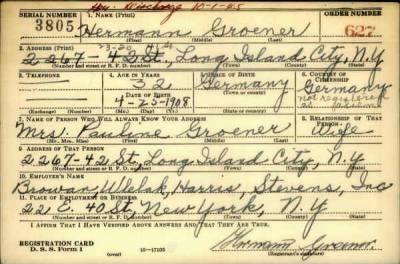 Hon. Discharge 10-1-45
SERIAL NUMBER 1. NAME (Print) ORDER NUMBER
3805 Hermann Groener 627
(First) (Middle) (Last)
2. ADDRESS (Print)
2267-42 St, Long Island City, N.Y
(Number and street or R. F. D. number) (Town) (County) (State)
3. TELEPHONE 4. AGE IN YEARS 5. PLACE OF BIRTH 6. COUNTRY OF CITIZENSHIP
32 Germany Germany
DATE OF BIRTH (Town or county)
4-25-1908 not registered
(Exchange) (Number) (Mo.) (Day) (Yr.) (State or country)
7. NAME OF PERSON WHO WILL ALWAYS KNOW YOUR ADDRESS 8. RELATIONSHIP OF THAT PERSON
Mrs. Pauline Groener Wife
(Mr., Mrs., Miss) (First) (Middle) (Last)
9. ADDRESS OF THAT PERSON
2267-42 St, Long Island City, N.Y.
(Number and street or R. F. D. number) (Town) (County) (State)
10. EMPLOYER'S NAME
Harris, Stevens, Inc
11. PLACE OF EMPLOYMENT OR BUSINESS
22 E. 40 St, New York, N.Y
(Number and street or R. F. D. number) (Town) (County) (State)
I AFFIRM THAT I HAVE VERIFIED ABOVE ANSWERS AND THAT THEY ARE TRUE.
REGISTRATION CARD
D. S. S. Form 1 (over) 16-17105 Hermann Groener
(Registrant's signature)